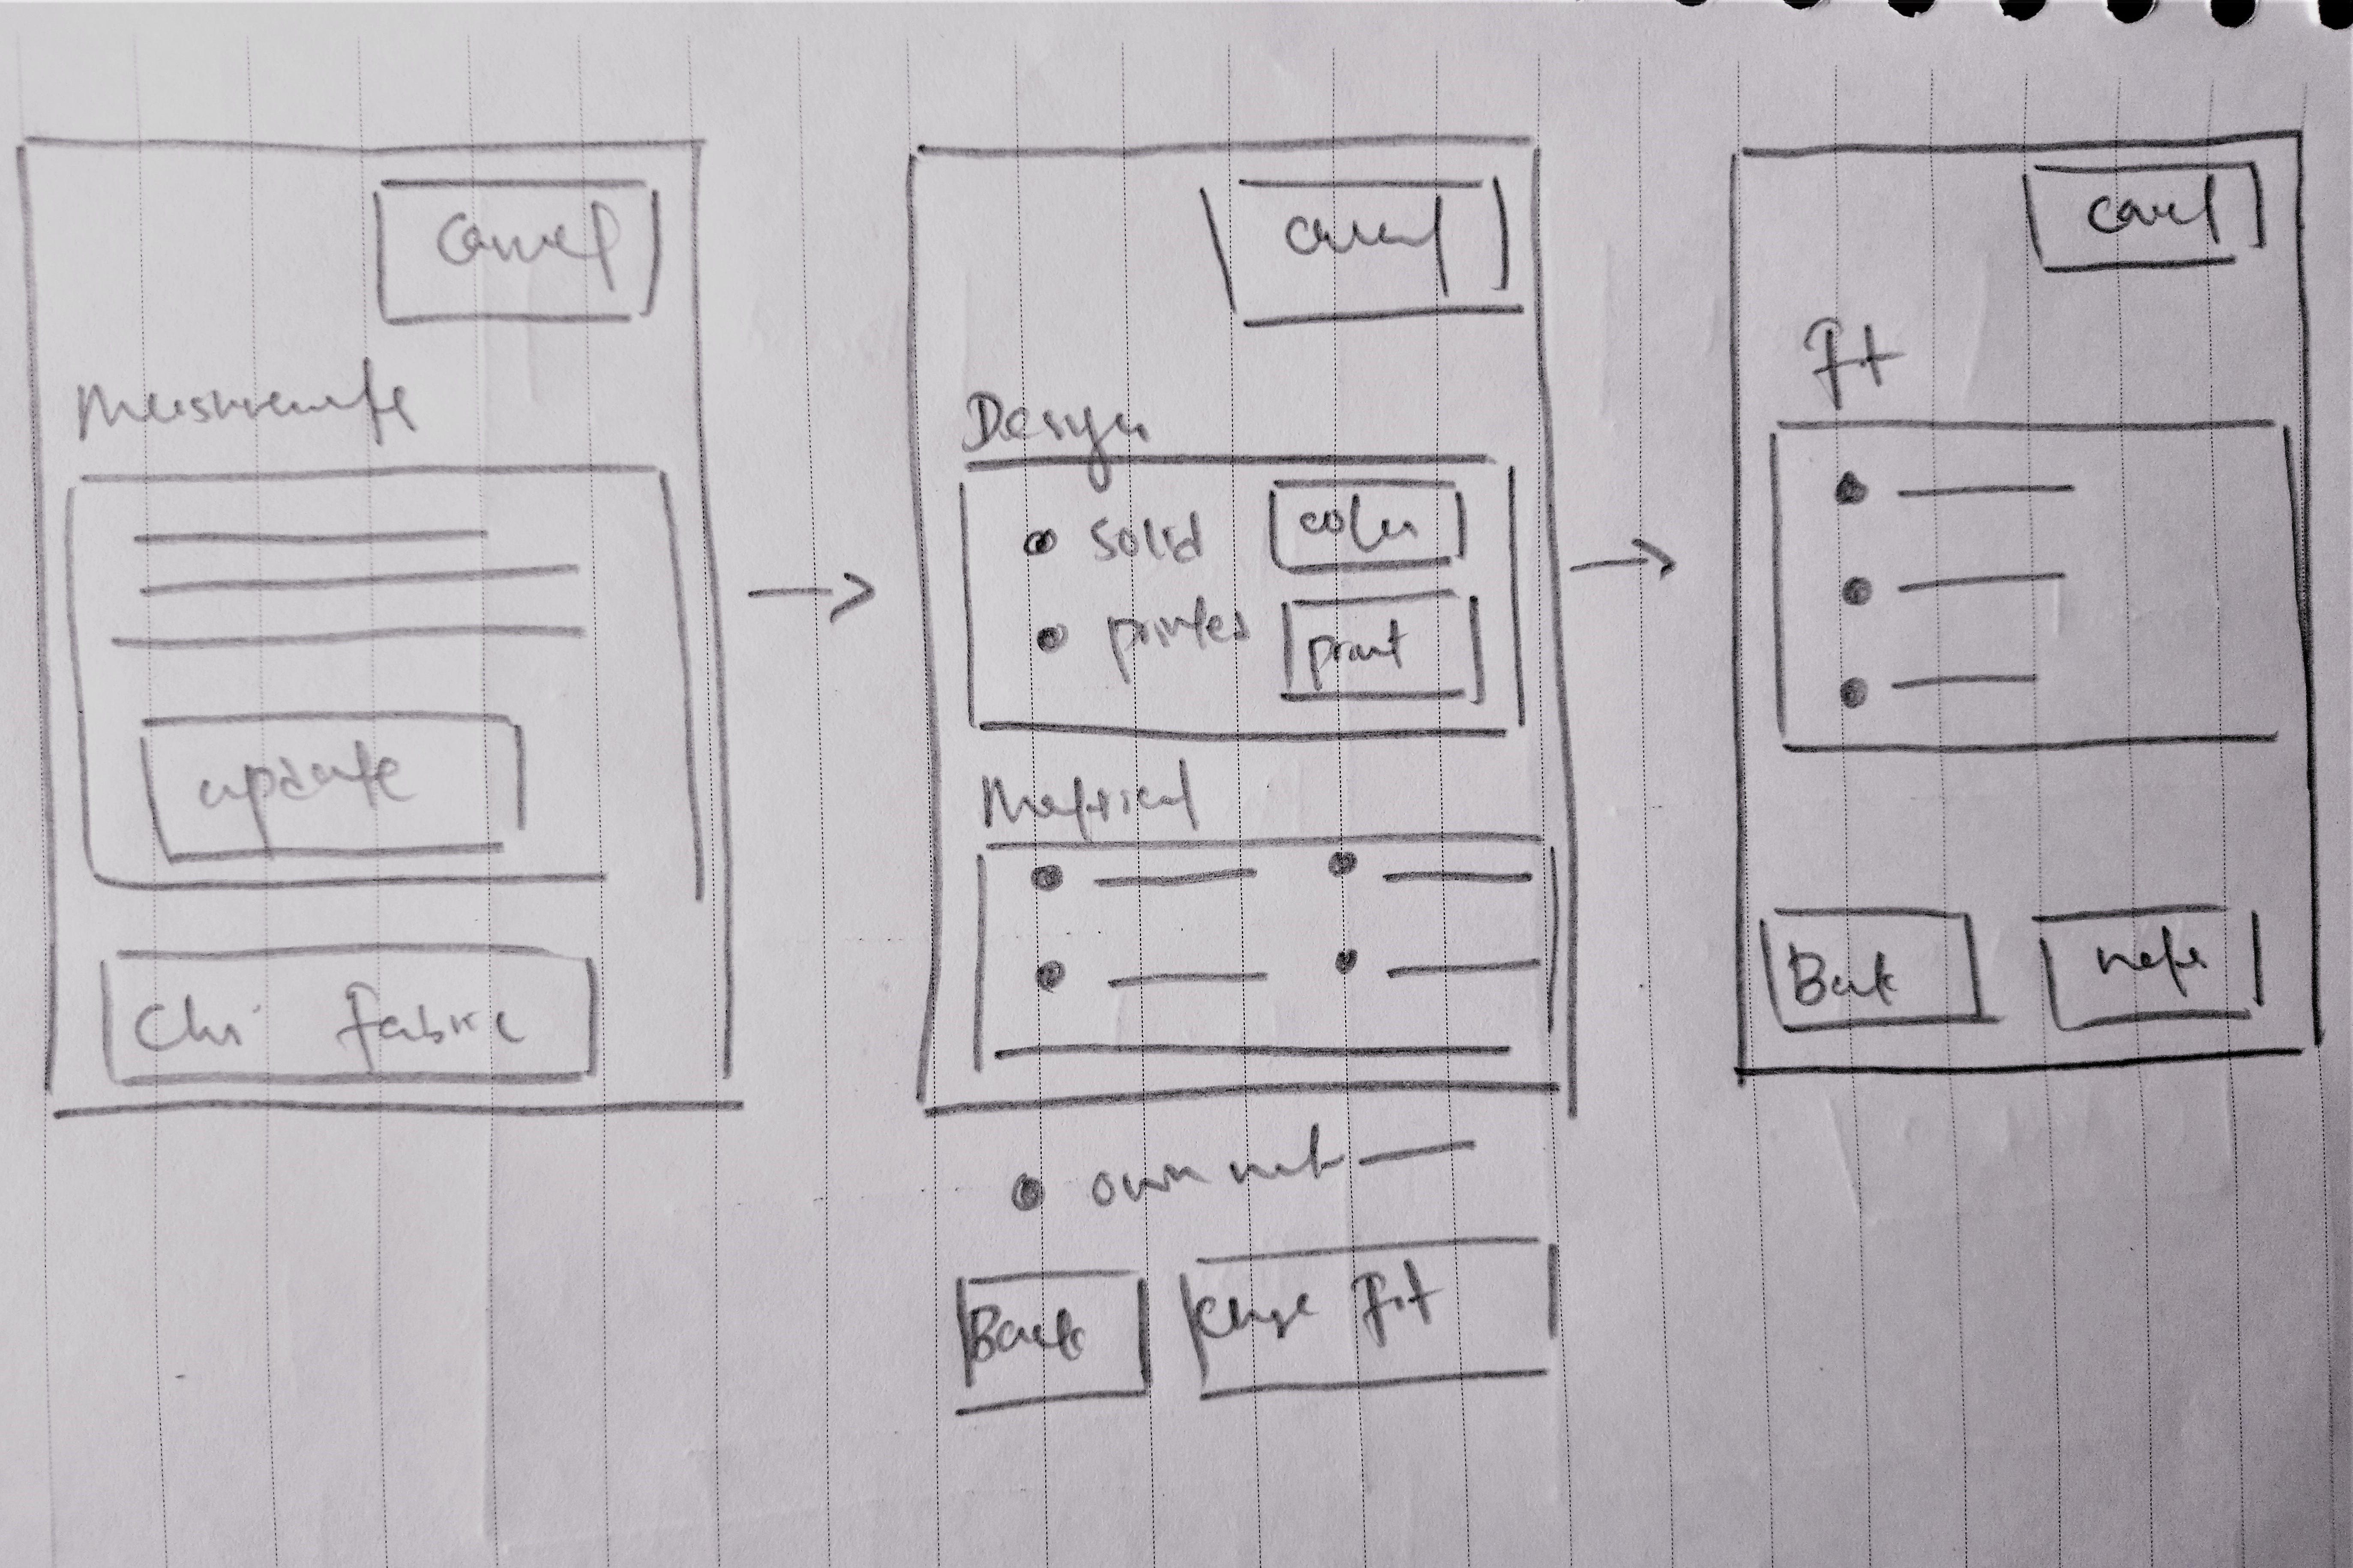 Cancel
Measurements
update
Fabric
Cancel
Design
solid color
printed print
Material
own
Back Fit
Cancel
Fit
Back